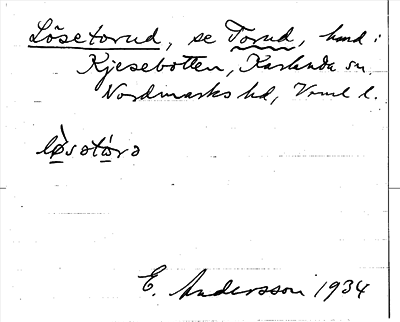 Lösetorud, se Torud, hmd i
Kjesebotten, Karlanda sn,
Nordmarks hd, Vrml l.
lø̀sotóro
E. Andersson 1934